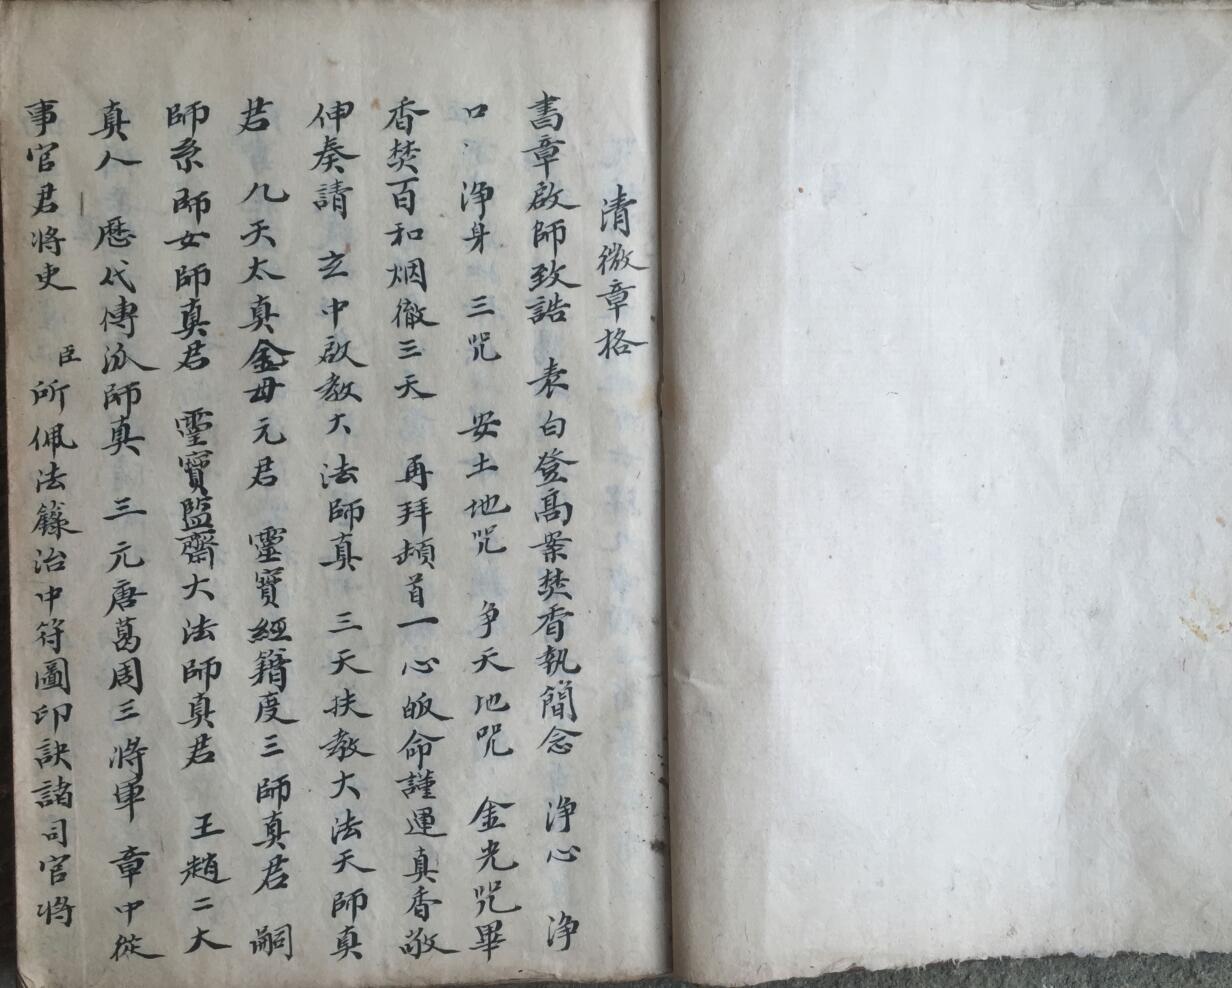 清微章格
書章啟師致誥 表白登高案焚香執簡念 淨心 淨
口 淨身 三咒 安土地咒 净天地咒 金光咒畢
香焚百和烟徹三天 再拜頓首一心皈命謹運真香敬
伸奏請 玄中啟教大法師真 三天扶教大法天師真
君 九天太真金母元君 靈寶經籍度三師真君 嗣
師系師女師真君 靈寶監齋大法師真君 王趙二大
真人 歷代傳派師真 三元唐葛周三將軍 章中從
事官君將吏 臣所佩法籙治中符圖印訣諸司官將